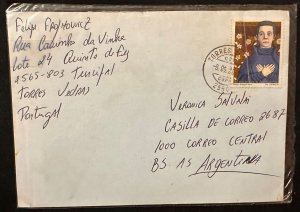 Felipe
Rua Caminho da Vinha
Lote 24 Quinta de
2565-803 Turcifal
Torres Vedras
Portugal
TORRES
VERONICA
CASILLA DE CORREO 8687
1000 CORREO CENTRAL
BS AS ARGENTINA